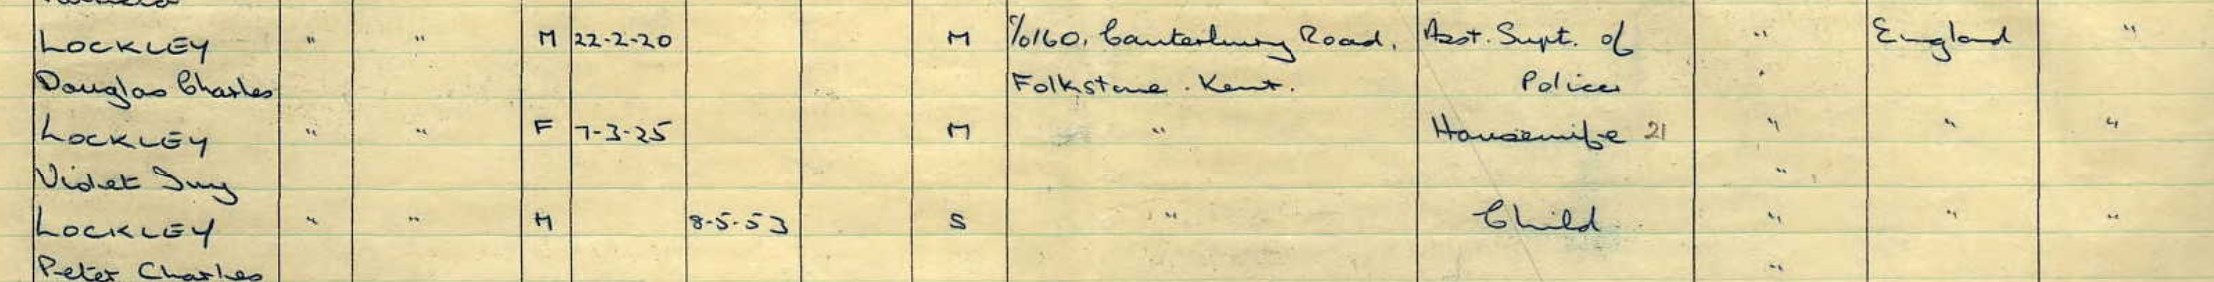 LOCKLEY " " M 22-2-20 M c/o 160, Canterbury Road, Asst. Supt. of " England "
Douglas Charles Folkstone. Kent. Police "
LOCKLEY " " F 7-3-25 M " Housewife 21 " " "
Violet Ivy "
LOCKLEY " " M 8-5-53 S " Child " " "
Peter Charles "